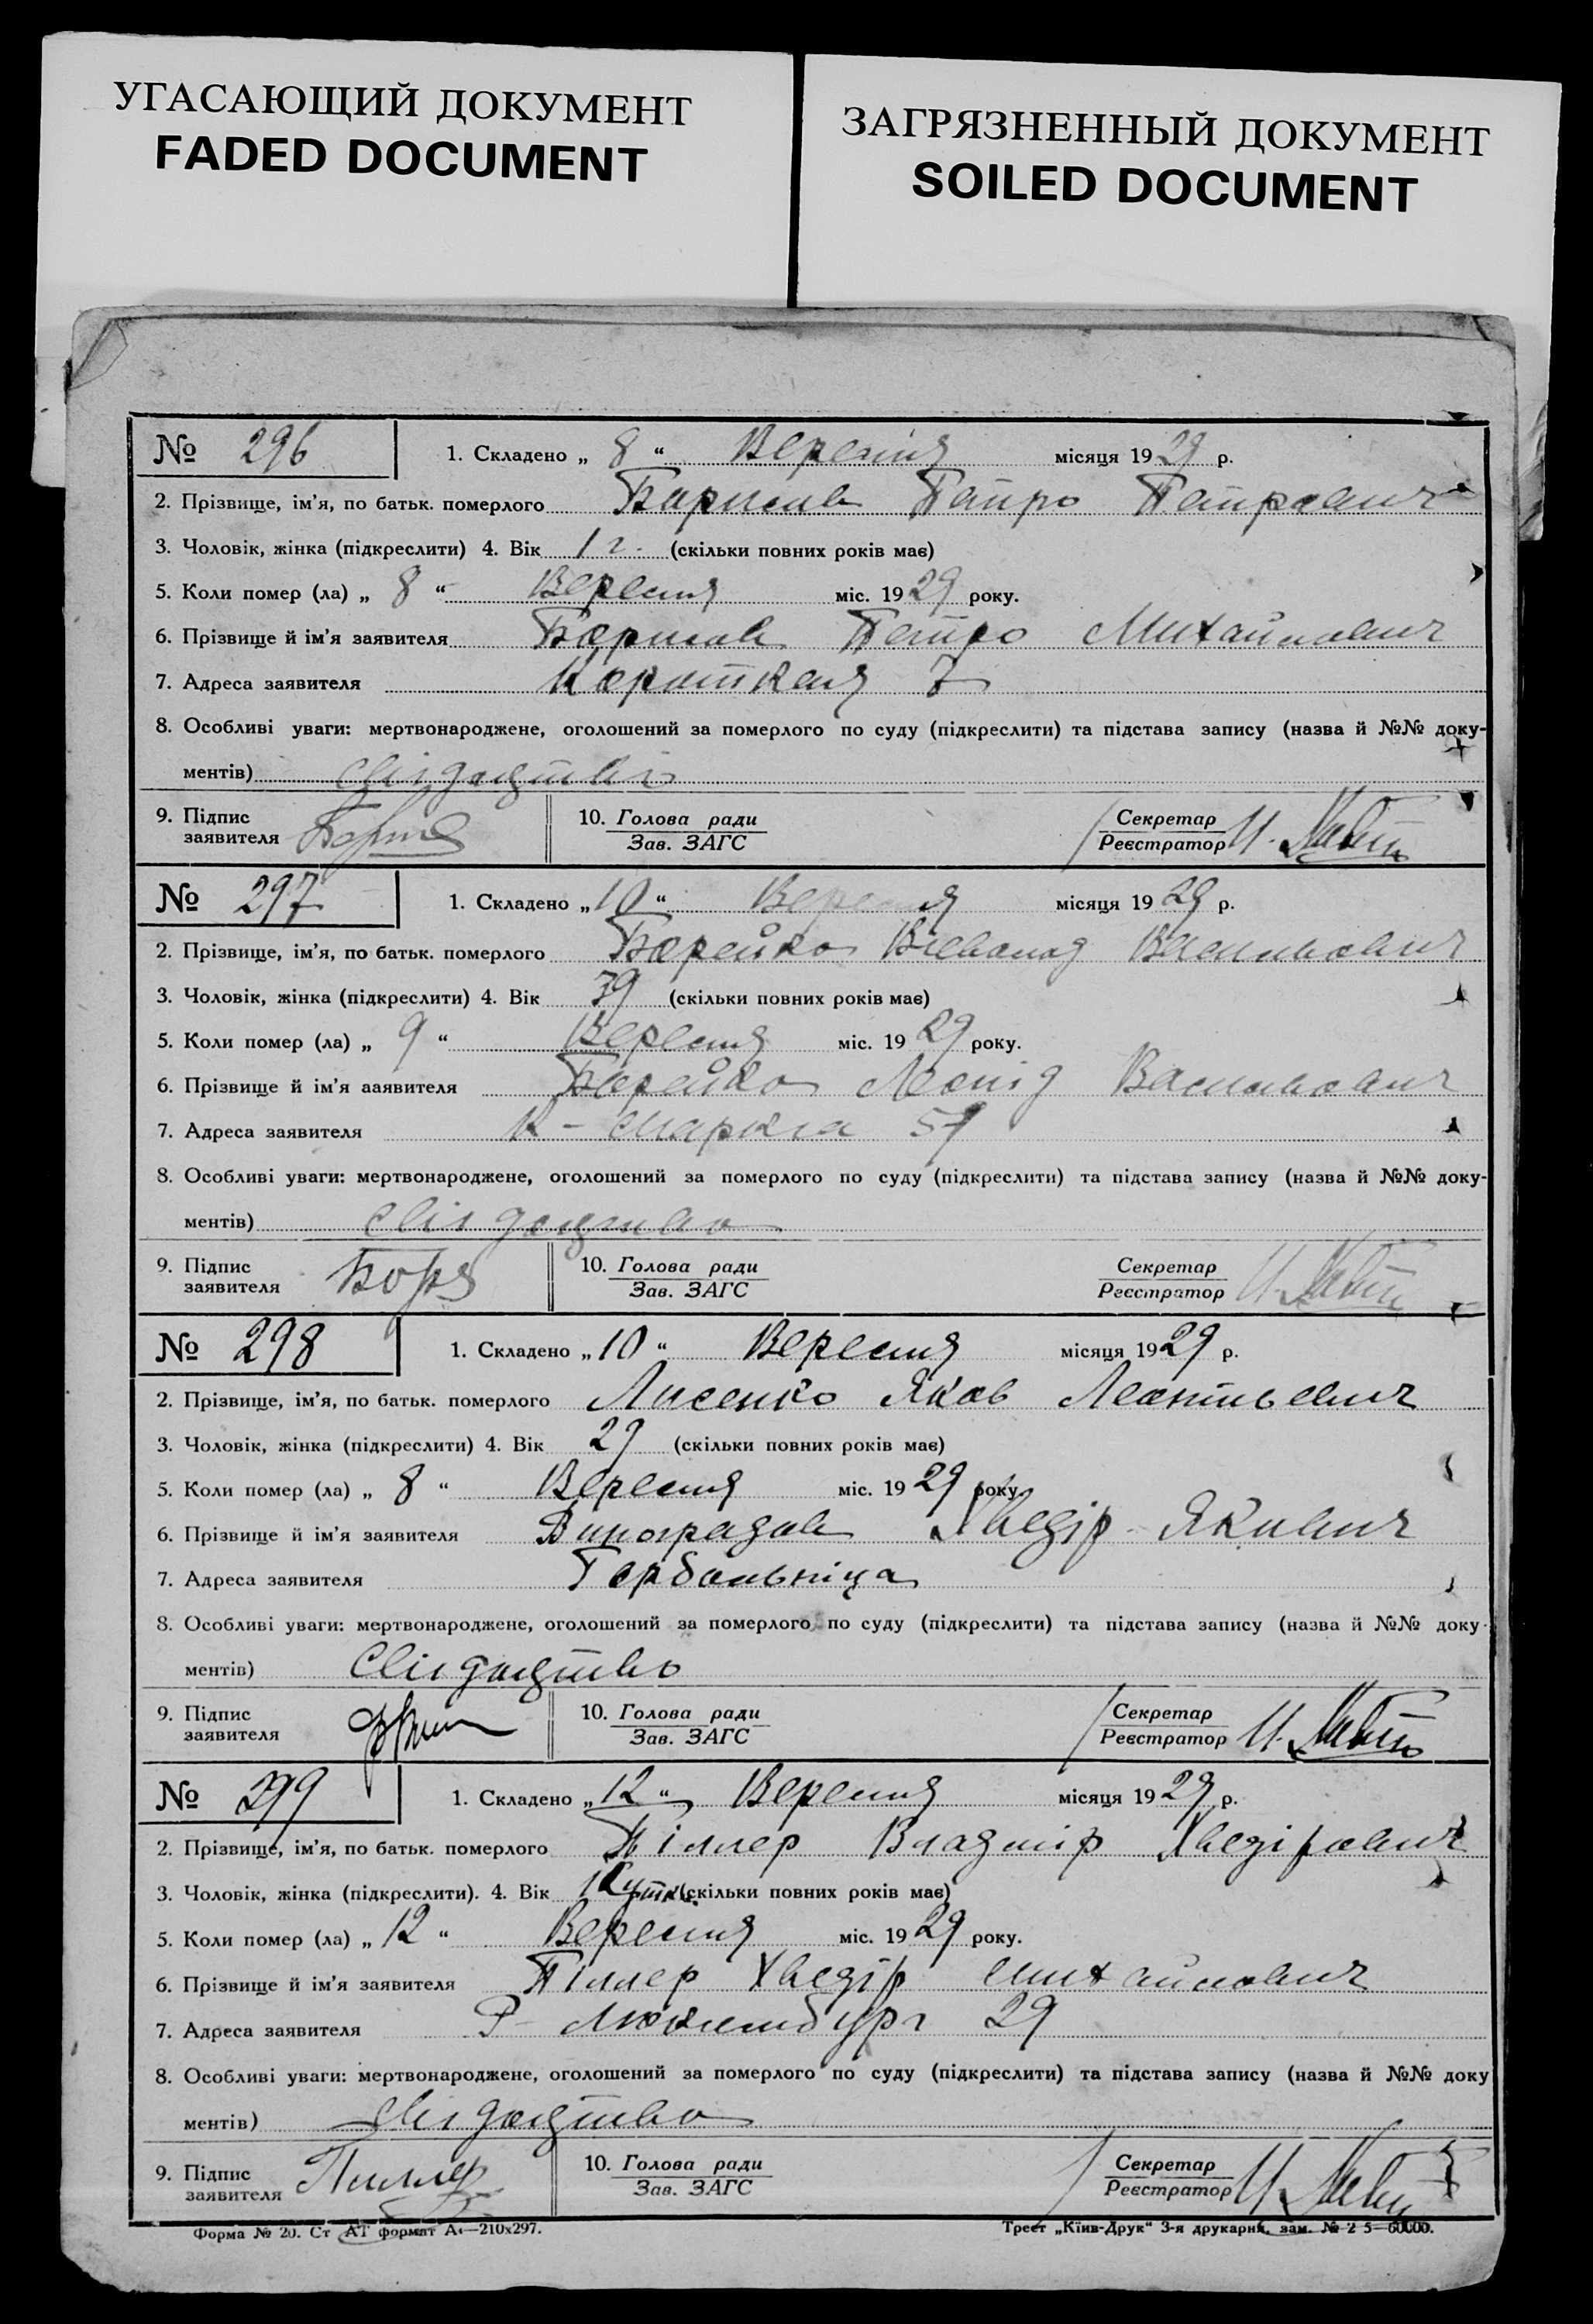 УГАСАЮЩИЙ ДОКУМЕНТ
FADED DOCUMENT
ЗАГРЯЗНЕННЫЙ ДОКУМЕНТ
SOILED DOCUMENT
№ 296 1. Складено „ 8 “ Вересня місяця 1929 р.
2. Прізвище, ім’я, по батьк. померлого Борисов Петро Петрович
3. Чоловік, жінка (підкреслити) 4. Вік 1 г. (скільки повних років має)
5. Коли помер (ла) „ 8 “ Вересня міс. 1929 року.
6. Прізвище й ім’я заявителя Борисов Петро Михайлович
7. Адреса заявителя Короткая 7
8. Особливі уваги: мертвонароджене, оголошений за померлого по суду (підкреслити) та підстава запису (назва й №№ доку-
ментів) свідоцтво
9. Підпис заявителя 10. Голова ради Зав. ЗАГС Секретар Реєстратор
№ 297 1. Складено „ 10 “ Вересня місяця 1929 р.
2. Прізвище, ім’я, по батьк. померлого Борейко Всеволод Васильович
3. Чоловік, жінка (підкреслити) 4. Вік 39 (скільки повних років має)
5. Коли помер (ла) „ 9 “ Вересня міс. 1929 року.
6. Прізвище й ім’я ааявителя Борейко Леонід Васильович
7. Адреса заявителя К-Маркса
8. Особливі уваги: мертвонароджене, оголошений за померлого по суду (підкреслити) та підстава запису (назва й №№ доку-
ментів) свідоцтво
9. Підпис заявителя 10. Голова ради Зав. ЗАГС Секретар Реєстратор
№ 298 1. Складено „ 10 “ Вересня місяця 1929 р.
2. Прізвище, ім’я, по батьк. померлого Лисенко Яков Леонтьевич
3. Чоловік, жінка (підкреслити) 4. Вік 29 (скільки повних років має)
5. Коли помер (ла) „ 8 “ Вересня міс. 1929 року
6. Прізвище й ім’я заявителя Виноградов Хведір Якович
7. Адреса заявителя Горбольніца
8. Особливі уваги: мертвонароджене, оголошений за померлого по суду (підкреслити) та підстава запису (назва й №№ доку-
ментів) Свідоцтво
9. Підпис заявителя 10. Голова ради Зав. ЗАГС Секретар Реєстратор
№ 299 1. Складено „ 12 “ Вересня місяця 1929 р.
2. Прізвище, ім’я, по батьк. померлого Піллер Владмір Хведірович
3. Чоловік, жінка (підкреслити). 4. Вік (скільки повних років має)
5. Коли помер (ла) „ 12 “ Вересня міс. 1929 року.
6. Прізвище й ім’я заявителя Піллер Хведір Михайлович
7. Адреса заявителя Р-Люксембург 29
8. Особливі уваги: мертвонароджене, оголошений за померлого по суду (підкреслити) та підстава запису (назва й №№ доку
ментів) свідоцтво
9. Підпис заявителя Пиллер 10. Голова ради Зав. ЗАГС Секретар Реєстратор
Форма № 20. Ст АТ формат А4—210х297. Трест „Київ-Друк“ 3-я друкарня, зам. № 2 5—60000.